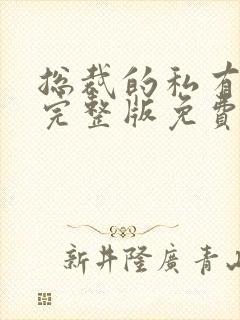 总裁的私有
完整版免费
新井隆廣青山